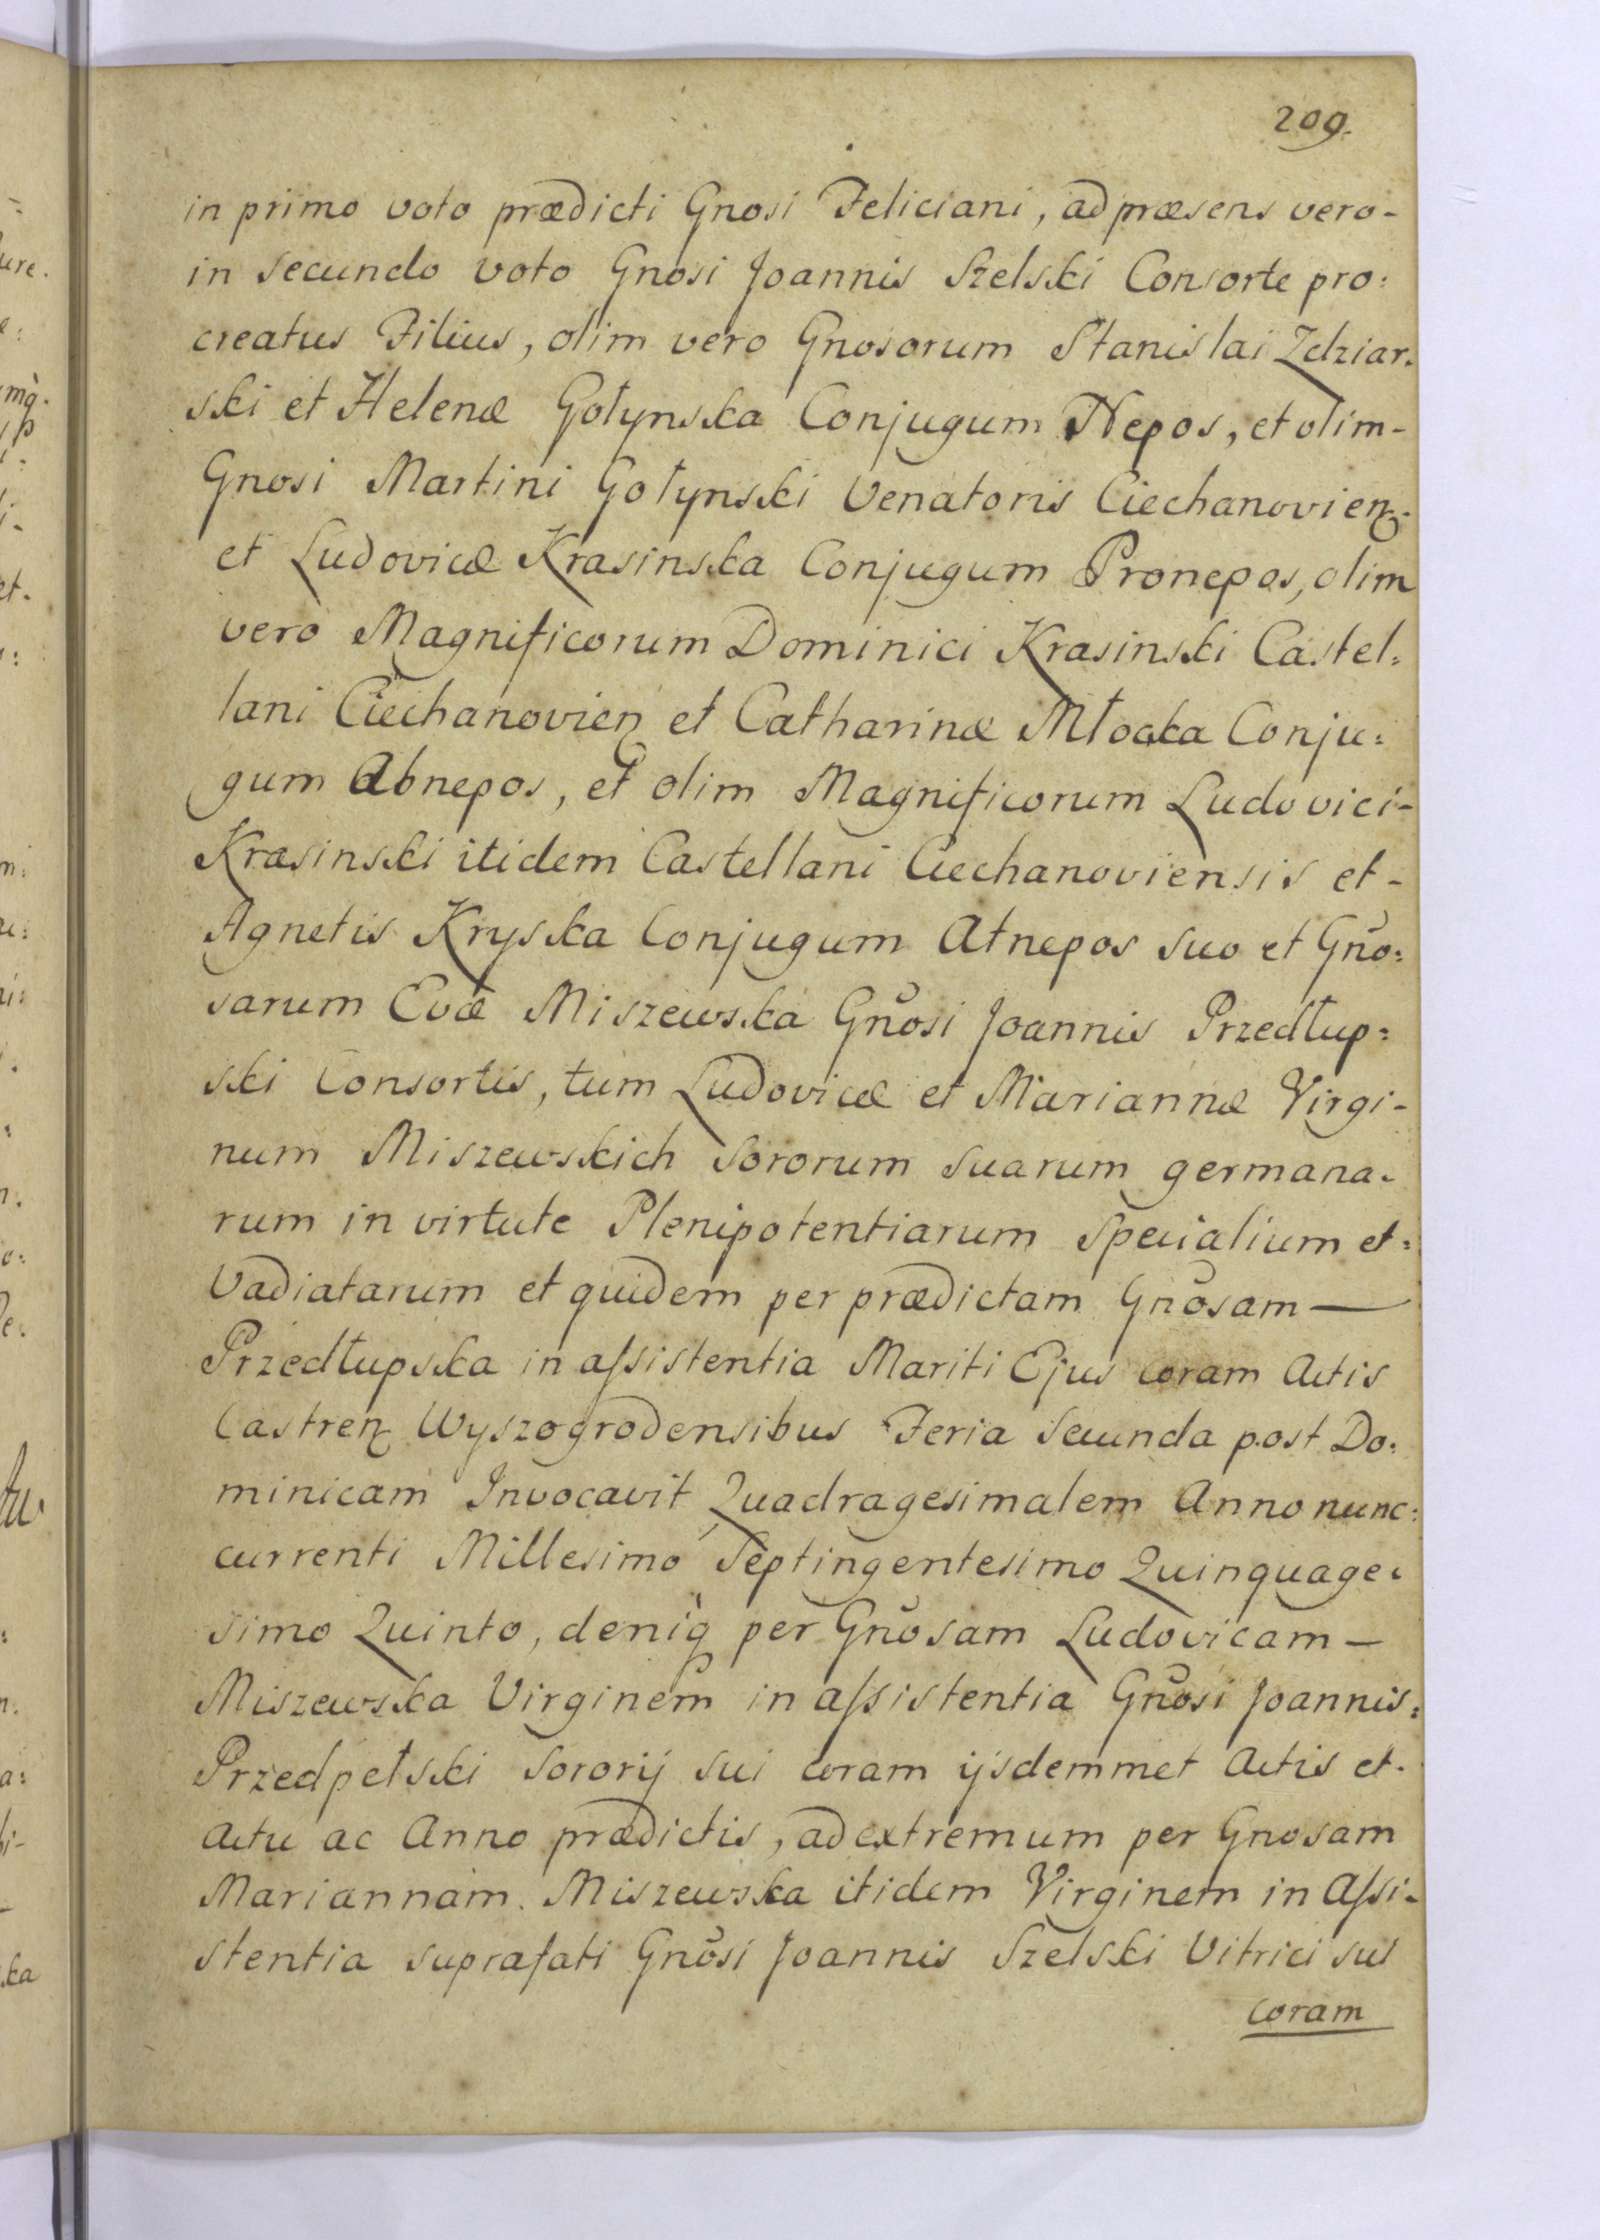 209.
in primo voto prædicti Gnosi Feliciani, ad præsens vero-
in secundo voto Gnosi Joannis Szelski Consorte pro:
creatus Filius, olim vero Gnosorum Stanislai Zdziar.
ski et Helenæ Gołynska Conjugum Nepos, et olim-
Gnosi Martini Gołynski Venatoris Ciechanovien.
et Ludovicæ Krasinska Conjugum Pronepos, olim
vero Magnificorum Dominici Krasinski Castel:
lani Ciechanovien et Catharinæ Młocka Conju:
gum Abnepos, et olim Magnificorum Ludovici-
Krasinski itidem Castellani Ciechanoviensis et-
Agnetis Kryska Conjugum Atnepos suo et Gno:
sarum Evæ Miszewska Gnosi Joannis Przedłup:
ski Consortis, tum Ludovicæ et Mariannæ Virgi-
num Miszewskich Sororum suarum germana.
rum in virtute Plenipotentiarum Specialium et:
Vadiatarum et quidem per prædictam Gnosam —
Przedłupska in aſsistentia Mariti Ejus coram Actis
Castren Wyszogrodensibus Feria Secunda post Do:
minicam Invocavit Quadragesimalem Anno nunc:
currenti Millesimo Septingentesimo Quinquage:
simo Quinto, deniq̀ per Gnosam Ludovicam —
Miszewska Virginem in aſsistentia Gnosi Joannis:
Przedpełski Sororij sui coram ijsdemmet Actis et.
actu ac Anno prædictis, ad extremum per Gnosam
Mariannam. Miszewska itidem Virginem in Aſsi-
stentia suprafati Gnosi Joannis Szelski Vitrici sui
coram